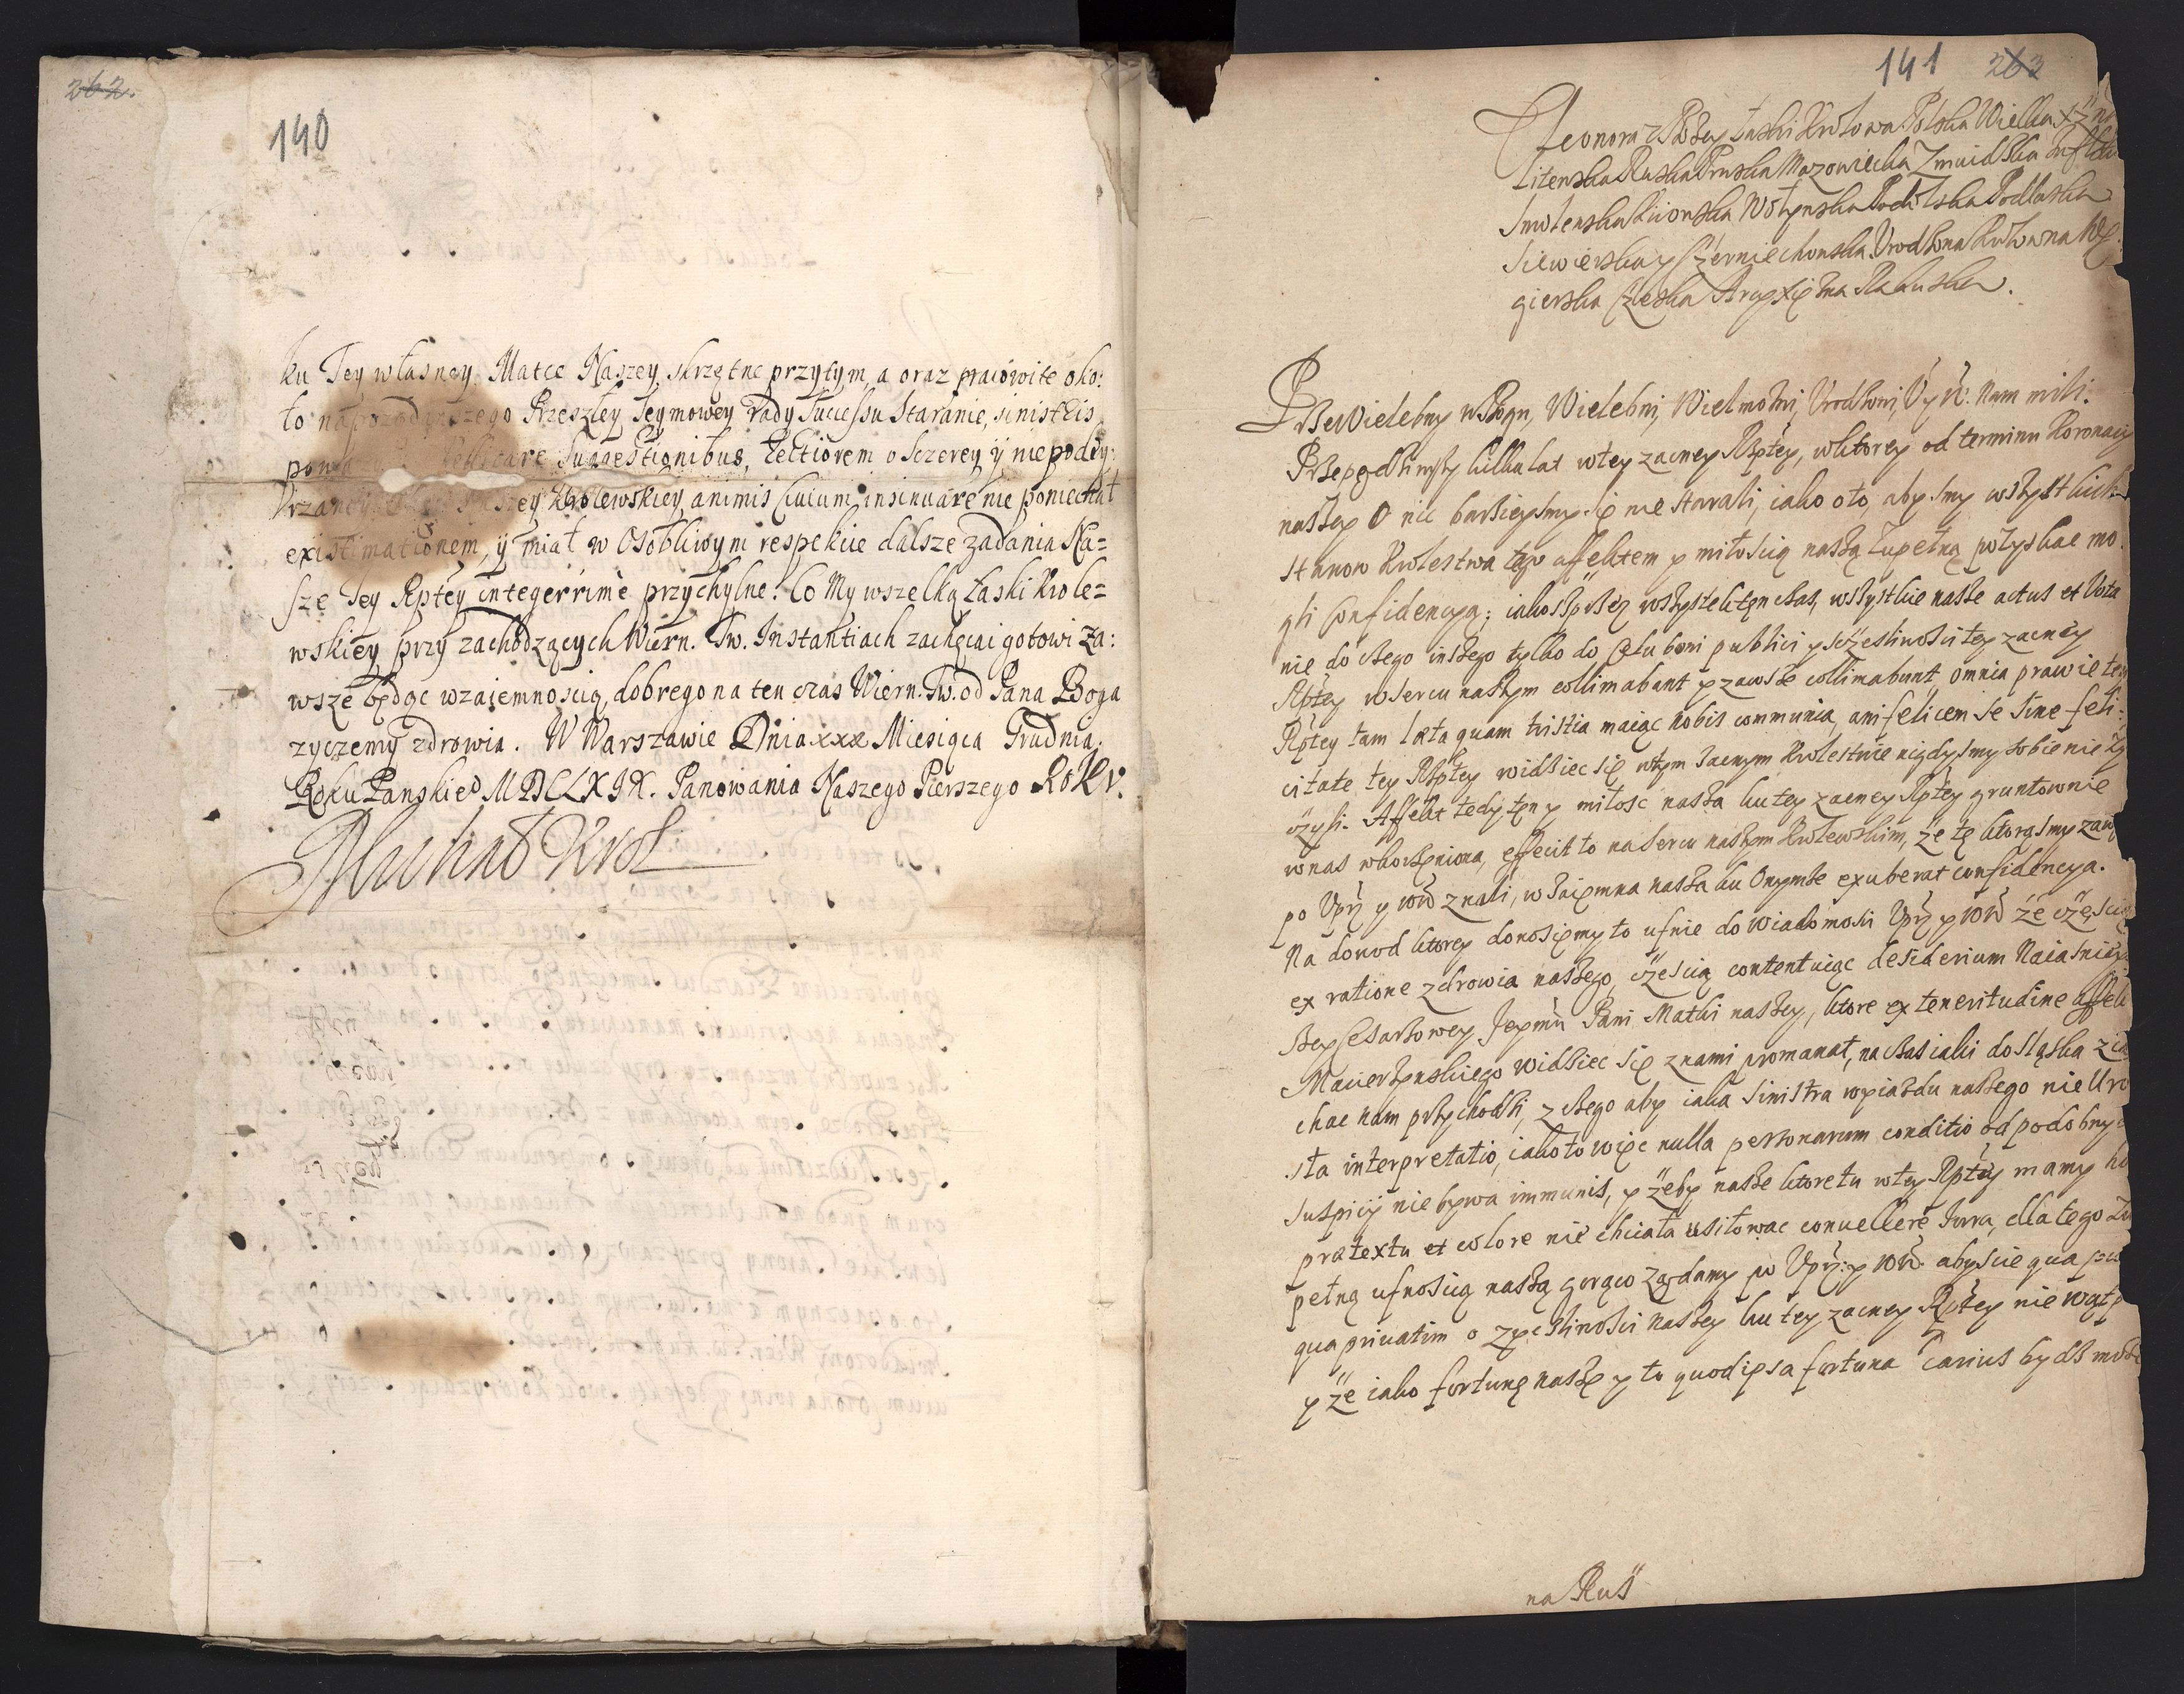 262.
140
ku Tey własney Matce Naszey, skrzętne przytym, a oraz pracowite oko:
ło Przeszłey Seymowey rady Successu Staranie, sinistris
Suggestionibus, Lectiorem o Sczerey ÿ niepodey:
Krolewskiey, animis Civium, insinuare nie poniechał
existimationem, ÿ miał w Osobliwym respekcie dalsze żądania Na=
sze Tey Rptey integerrimè przychylne. Co My wszelką Łaski Krole=
wskiey przy zachodzących Wiern. Tw. Instantiach zachęcai gotowi za:
wsze będąc wzaiemnoscią, dobrego na ten czas Wiern. Tw. od Pana Boga
zyczemy zdrowia. W Warszawie Dnia xxx Miesiąca Grudnia.
Roku Panskieo MDCLXIX. Panowania Naszego Pierszego Roku.
Michał Krol
141 263
Eleonora z Bożey Łaski Krolowa Polska Wielka X
Litewska Ruska Pruska Mazowiecka Zmuidzka
Smolenska Kiiowska Wołynska Podolska Podlaska
Siewierska y Czerniechowska. Urodzona Krolewna Wę
gierska Czeska Arcyxiężna Rakuska.
Przewielebny w Bogu, Wielebni, Wielmożni, Urodzeni, Nam mili.
Przepędziwszy kilka lat w tey zacney Rptey, w ktorey od terminu Koronacij
naszey O nic barziey smy się nie starali, iako oto, aby smy wszystkich
stanow Krolestwa tego affektem y miłoscią naszą zupełną pozyskac mo
gli Confidencyą; iakosz przez wszystek ten czas, wszystkie nasze actus et Vota
nie do czego inszego tylko do Celu boni publici y szczesliwosci tey zacney
Rptey w sercu naszym collimabant y zawsze collimabunt omnia prawie tey
Rptey tam læta quam tristia maiąc nobis communia, ani felicem se sine feli:
citate tey Rptey widziec się w tym zacnym Krolestwie nigdy smy sobie nie ży
czyli. Affekt tedy ten y miłosc nasza ku tey zacney Rptey gruntownie
w nas wkorzeniona, effecit to na sercu naszym Krolewskim, że tę ktorąsmy zaw
po Uprz y WW znali, wzaięmna nasza ku Onymże exuberat confidencya.
Na dowod ktorey donosięmy to ufnie do wiadomosci Uprz y WW że częścią
ex ratione zdrowia naszego, częscią contentuiąc desiderium Naiasniey
szey Cesarzowey Jeymci Pani Matki naszey, ktore ex teneritudine affek
Macierzynskiego widziec się z nami promanat, na czas iaki do Sląska zia
chac nam przychodzi, z czego aby iaka sinistra wyiazdu naszego nie uro
sla interpretatio, iako to więc nulla personarum conditio od podobnych
suspicij nie bywa immunis, y żeby nasze ktore tu w tey Rptey mamy
prætextu et colore nie chciała usiłowac convellere Jura, dla tego zu
pełną ufnoscią naszą gorąco żądamy po Uprz: y WW. abyscie qua pu
qua privatim o zyczliwosci naszey ku tey zacney Rptey nie wątp
y że iako fortunę naszę y to quod ipsa fortuna carius bydz może
na Ruś